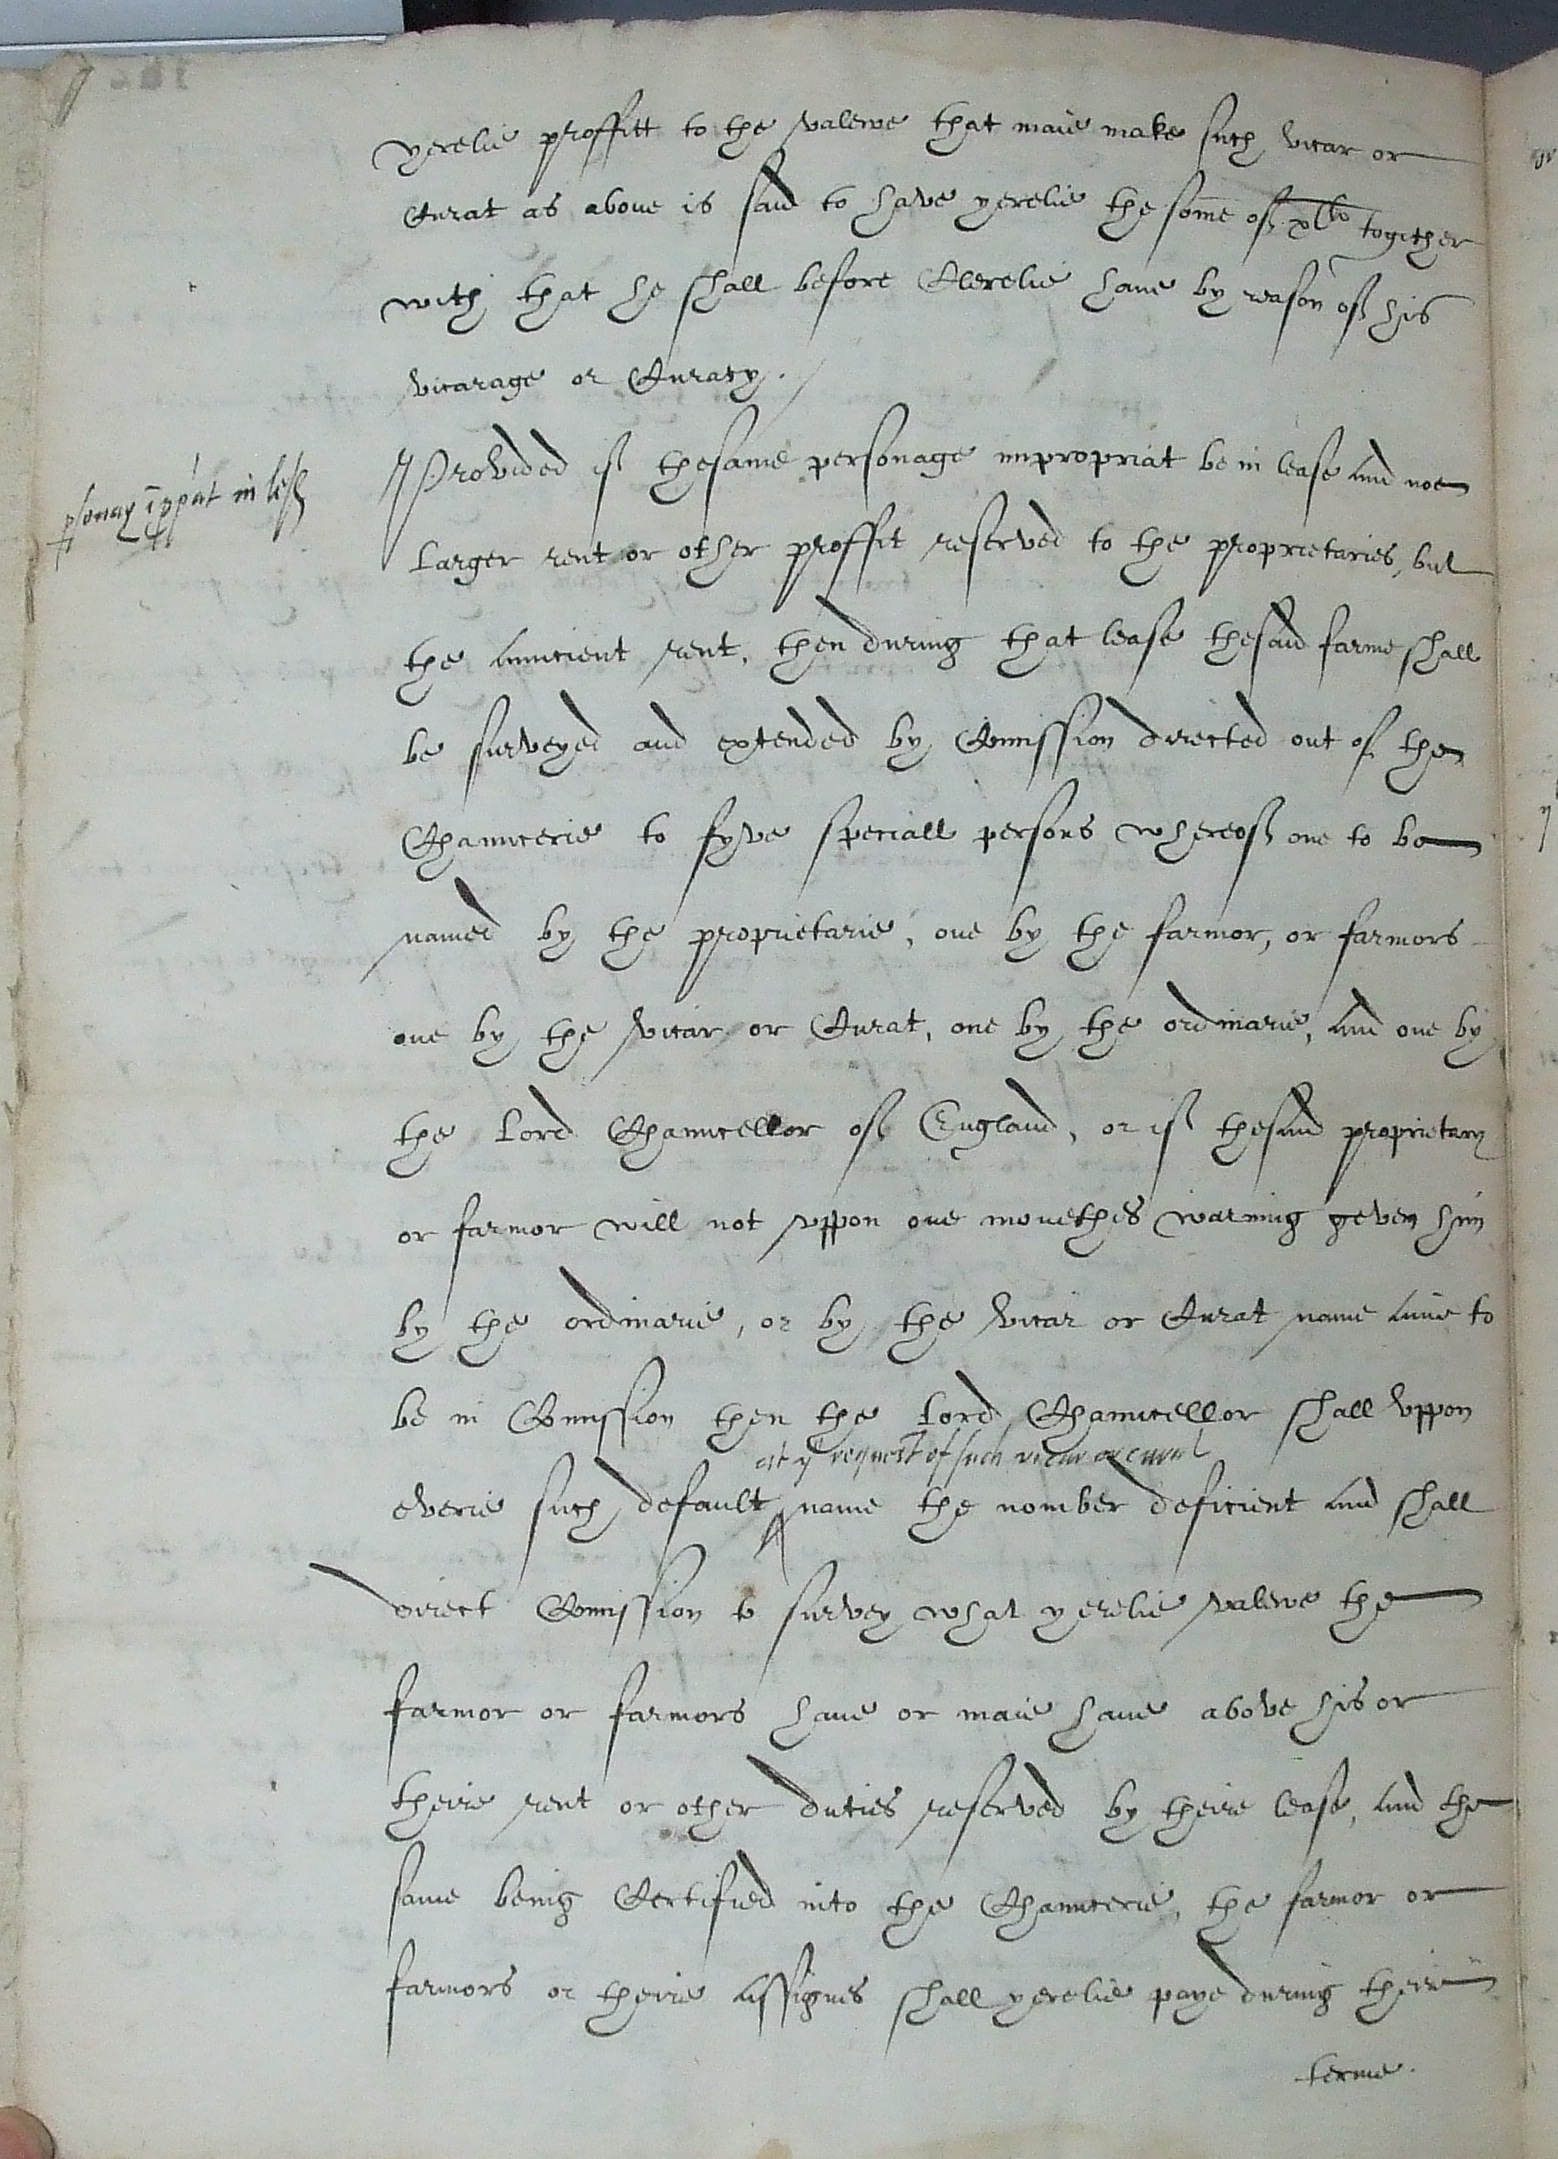 yerelie proffitt to the valewe that maie make such vicar or
Curat as above is said to have yerelie the some of xlli togither
with that he shall before Clerelie haue by reason of his
vicarage or Curacy.
Provided if thesame personage impropriat be in lease and noe
larger rent or other proffit reserved to the proprietaries, but
the auncient rent, then during that lease thesaid farme shall
be surveyed and extended by Comission directed out of the
Chauncerie to fyve speciall persons whereof one to be
named by the proprietarie, one by the farmor, or farmors
one by the vicar or Curat, one by the ordinarie, and one by
the Lord Chauncellor of England, or if thesaid proprietary
or farmor will not vppon one monethes warning geven him
by the ordinarie, or by the vicar or Curat name anie to
be in Comission then the Lord Chauncellor shall vppon
at ye request of such vicar or curat
everie such default name the nomber deficient and shall
direct Comission to survey what yerelie valewe the
farmor or farmors haue or maie haue above his or
theire rent or other duties reserved by theire lease, and the
same being Certified into the Chauncerie, the farmor or
farmors or theire assignes shall yerelie paye during their
terme.
psonag īpp'at in less